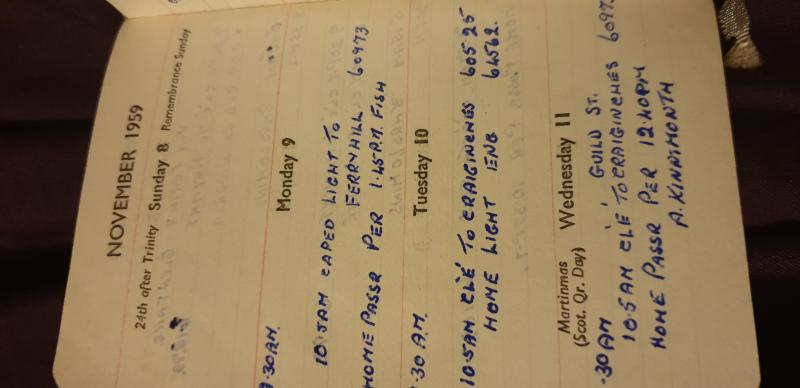 NOVEMBER 1959
24th after Trinity Sunday 8 Remembrance Sunday
Monday 9
9.30AM.
10.5AM CAPED LIGHT TO
FERRYHILL 60973
HOME PASSR PER 1.45P.M. FISH
Tuesday 10
.30 A.M.
10.5AM CLE' TO CRAIGINCHES 605.25
HOME LIGHT ENG 64562.
Martinmas
(Scot. Qr. Day) Wednesday 11
.30AM GUILD ST.
10.5AM CLE' TO CRAIGINCHES 6097
HOME PASSR PER 12.40PM
A. KINNIMONTH